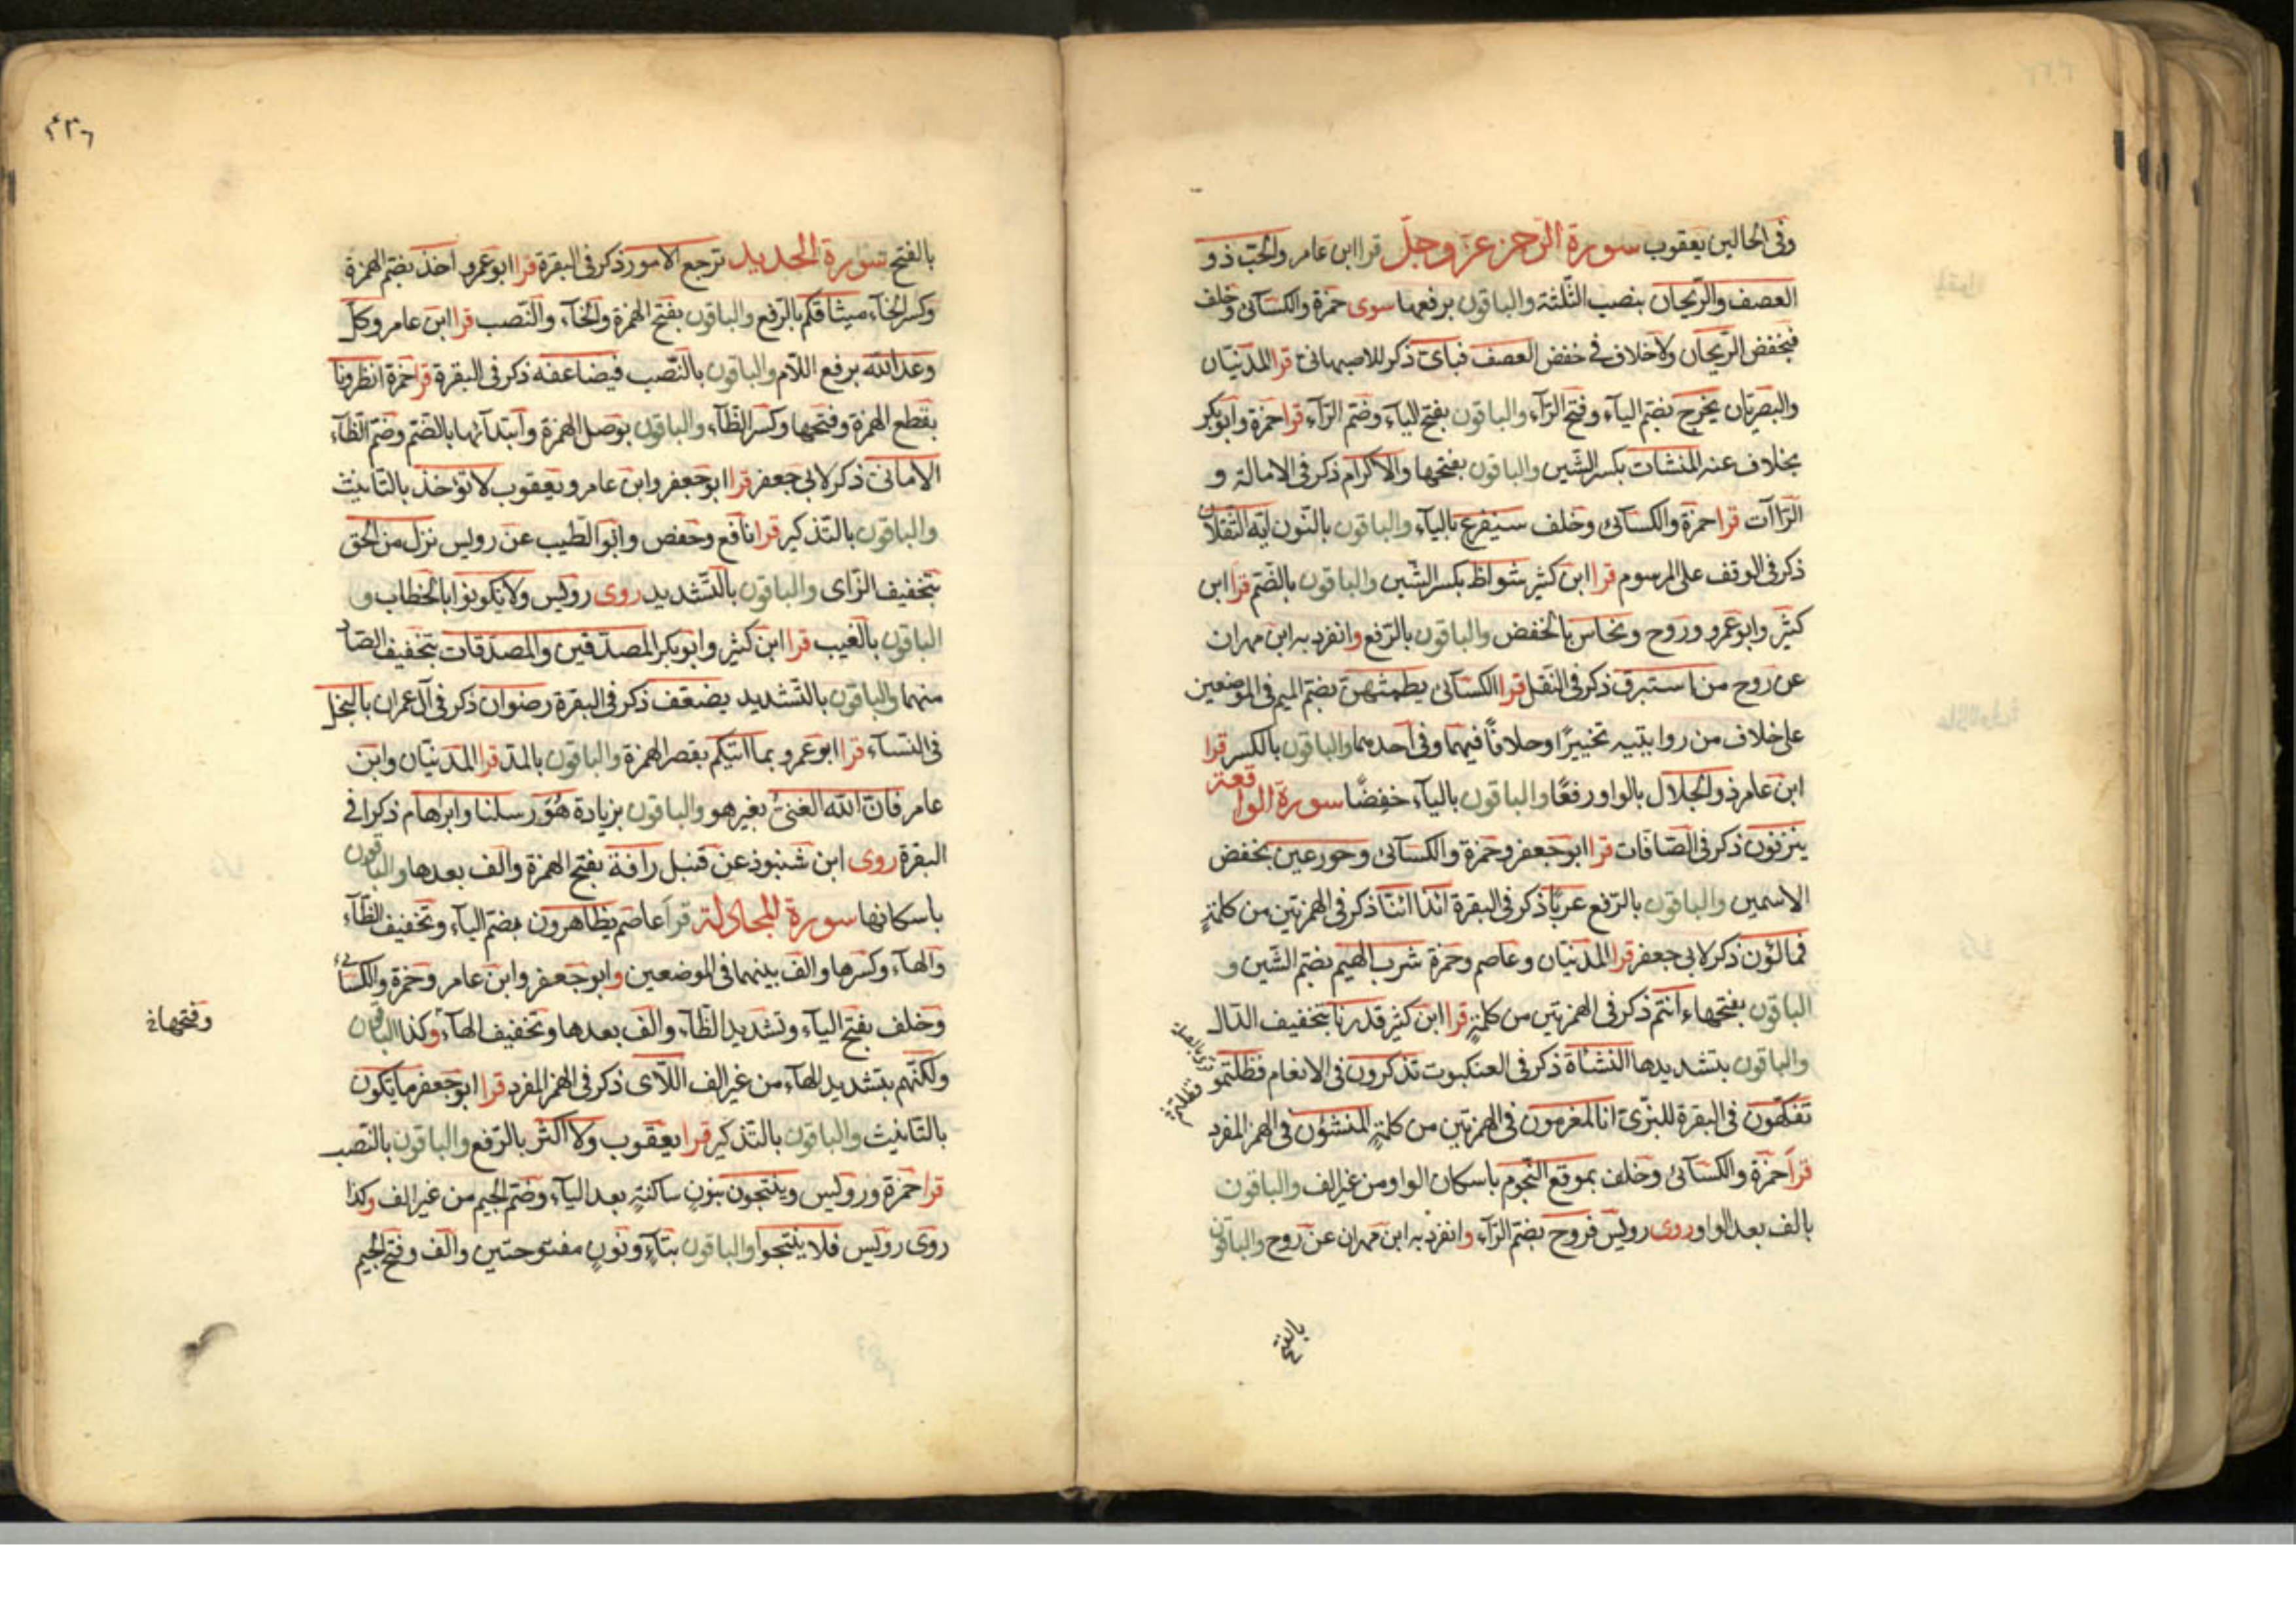 وفى الحالين يعقوب سورة الرحمن عز وجل قرا ابن عامر والحب ذو
العصف والريحان بنصب الثلثة والباقون برفعها سوى حمزة والكسآئى وخلف
فبخفض الريحان ولا خلاف فى خفض العصف فباى ذكر للاصبهانى قرا المدنيان
والبصريان يخرج بضم اليآء وفتح الرآء والباقون بفتح اليآء وضم الرآء قرا حمزة وابوبكر
بخلاف عنه المنشات بكسر الشين والباقون بفتحها والاكرام ذكر فى الامالة و
الرّاآت قرا حمزة والكسآئى وخلف سيفرغ باليآء والباقون بالنون ايه الثقلان
ذكر فى الوقف على المرسوم قرا ابن كثير شواظ بكسر الشين والباقون بالضم قرا ابن
كثير وابو عمرو وروح ونحاس بالخفض والباقون بالرفع وانفرد به ابن مهران
عن روح من استبرق ذكر فى النقل قرا الكسآئى يطمثهن بضم الميم فى الموضعين
على خلاف من روايتيه تخييرًا وخلافًا فيهما وفى احدهما والباقون بالكسر قرا
ابن عامر ذو الجلال بالواو رفعًا والباقون باليآء خفضًا سورة الواقعة
ينزفون ذكر فى الصافات قرا ابو جعفر وحمزة والكسآئى وحور عين بخفض
الاسمين والباقون بالرفع عربًا ذكر فى البقرة ائذا ائنا ذكر فى الهمزتين من كلمةٍ
فمالؤن ذكر لابى جعفر قرا المدنيان وعاصم وحمزة شرب الهيم بضم الشين و
الباقون بفتحها ءانتم ذكر فى الهمزتين من كلمةٍ قرا ابن كثير قدرنا بتخفيف الدال
والباقون بتشديدها النشأة ذكر فى العنكبوت تذكرون فى الانعام فظلتمو
تفكهون فى البقرة للبزى انا لمغرمون فى الهمزتين من كلمةٍ المنشؤن فى الهمز المفرد
قرا حمزة والكسآئى وخلف بموقع النجوم باسكان الواو من غير الف والباقون
بالف بعد الواو روى رويس فروح بضم الرآء وانفرد به ابن مهران عن روح والباقون
بالفتح
٢٣٦
بالفتح سورة الحديد ترجع الامور ذكر فى البقرة قرا ابو عمرو اخذ بضم الهمزة
وكسر الخآء ميثاقكم بالرفع والباقون بفتح الهمزة والخآء والنصب قرا ابن عامر وكل
وعد الله برفع اللام والباقون بالنصب فيضاعفه ذكر فى البقرة قرا حمزة انظرونا
بقطع الهمزة وفتحها وكسر الظآء والباقون بوصل الهمزة وابتدآئها بالضم وضم الظآء
الامانى ذكر لابى جعفر قرا ابو جعفر وابن عامر ويعقوب لا تؤخذ بالتانيث
والباقون بالتذكير قرا نافع وحفص وابو الطيب عن رويس نزل من الحق
بتخفيف الزاى والباقون بالتشديد روى رويس ولا تكونوا بالخطاب و
الباقون بالغيب قرا ابن كثير وابو بكر المصدقين والمصدقات بتخفيف الصاد
منهما والباقون بالتشديد يضعف ذكر فى البقرة رضوان ذكر فى آل عمران بالبخل
فى النسآء قرا ابو عمرو بما اتيكم بقصر الهمزة والباقون بالمد قرا المدنيان وابن
عامر فان الله الغنىُّ بغير هو والباقون بزيادة هو رسلنا وابراهام ذكرا فى
البقرة روى ابن شنبوذ عن قنبل رافة بفتح الهمزة والف بعدها والباقون
باسكانها سورة المجادلة قرا عاصم يظاهرون بضم اليآء وتخفيف الظآء
والهآء وكسرها والف بينهما فى الموضعين وابو جعفر وابن عامر وحمزة والكسائى
وخلف بفتح اليآء وتشديد الظآء والف بعدها وتخفيف الهآء وكذا الباقون
وفتحها
ولكنهم بتشديد الهآء من غير الف اللاى ذكر فى الهمز المفرد قرا ابو جعفر ما يكون
بالتانيث والباقون بالتذكير قرا يعقوب ولا اكثر بالرفع والباقون بالنصب
قرا حمزة ورويس وينتجون بنونٍ ساكنةٍ بعد اليآء وضم الجيم من غير الف وكذا
روى رويس فلا ينتجوا والباقون بتآءٍ ونونٍ مفتوحتين والف وفتح الجيم